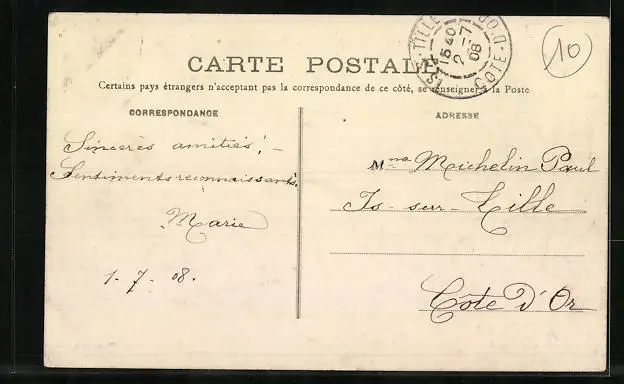 IS-S-TILLE CÔTE-D'OR
15 40
2 -7
08
10
CARTE POSTALE
Certains pays étrangers n'acceptant pas la correspondance de ce côté, se renseigner à la Poste
CORRESPONDANCE
Sincères amitiés, -
Sentiments reconnaissants.
Marie
1-7-08.
ADRESSE
Mme Michelin Paul
Is-sur-Tille
Côte D'Or